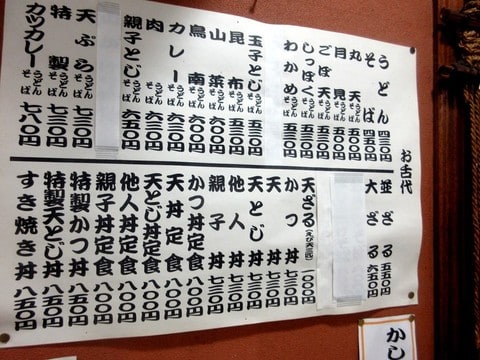 お舌代
うどん 四三〇円
そば 四五〇円
丸天 五三〇円
月見 五三〇円
ごぼ天 五三〇円
しっぽく うどんそば 五五〇円
わかめ うどんそば 五三〇円
玉子とじ 五三〇円
昆布 うどんそば 五三〇円
山菜 うどんそば 六五〇円
鳥南 うどんそば 六五〇円
カレー うどんそば 六三〇円
肉 うどんそば 六五〇円
親子とじ うどんそば 六五〇円
天ぷら うどんそば 七三〇円
特製 うどんそば 七三〇円
カツカレー うどんそば 七八〇円
並ざる 五五〇円
大ざる 六五〇円
天ざる(えび天三匹) 一〇〇〇円
かつ丼 七三〇円
天丼 七三〇円
天とじ丼 七三〇円
他人丼 七三〇円
親子丼 七三〇円
かつ丼定食 八〇〇円
天丼定食 八〇〇円
天とじ丼定食 八〇〇円
他人丼定食 八〇〇円
親子丼定食 八〇〇円
特製かつ丼 八五〇円
特製天とじ丼 八五〇円
すき焼き丼 八五〇円
かし